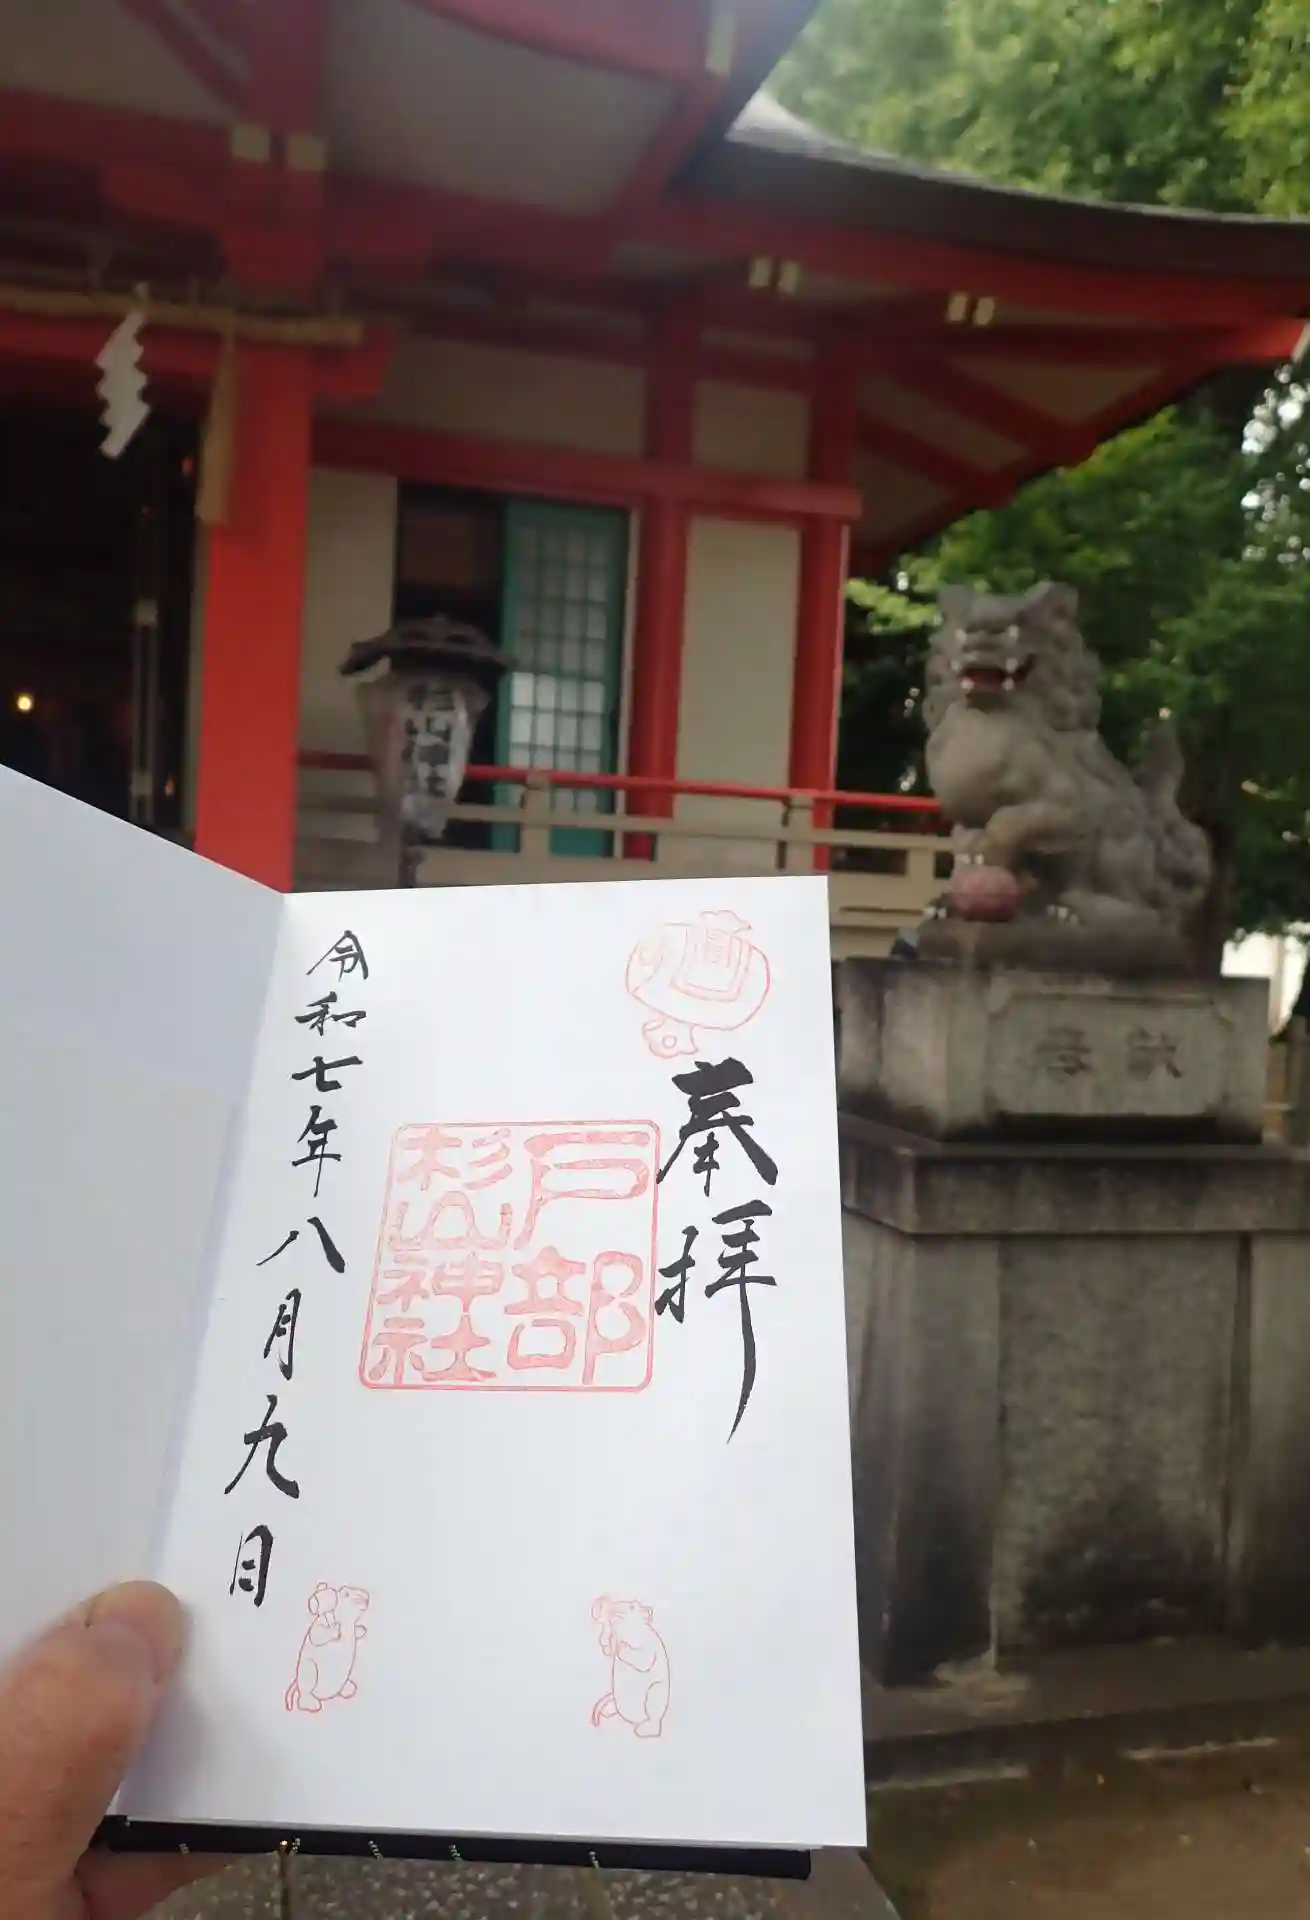 奉拝
戸部
杉山神社
令和七年八月九日
奉献